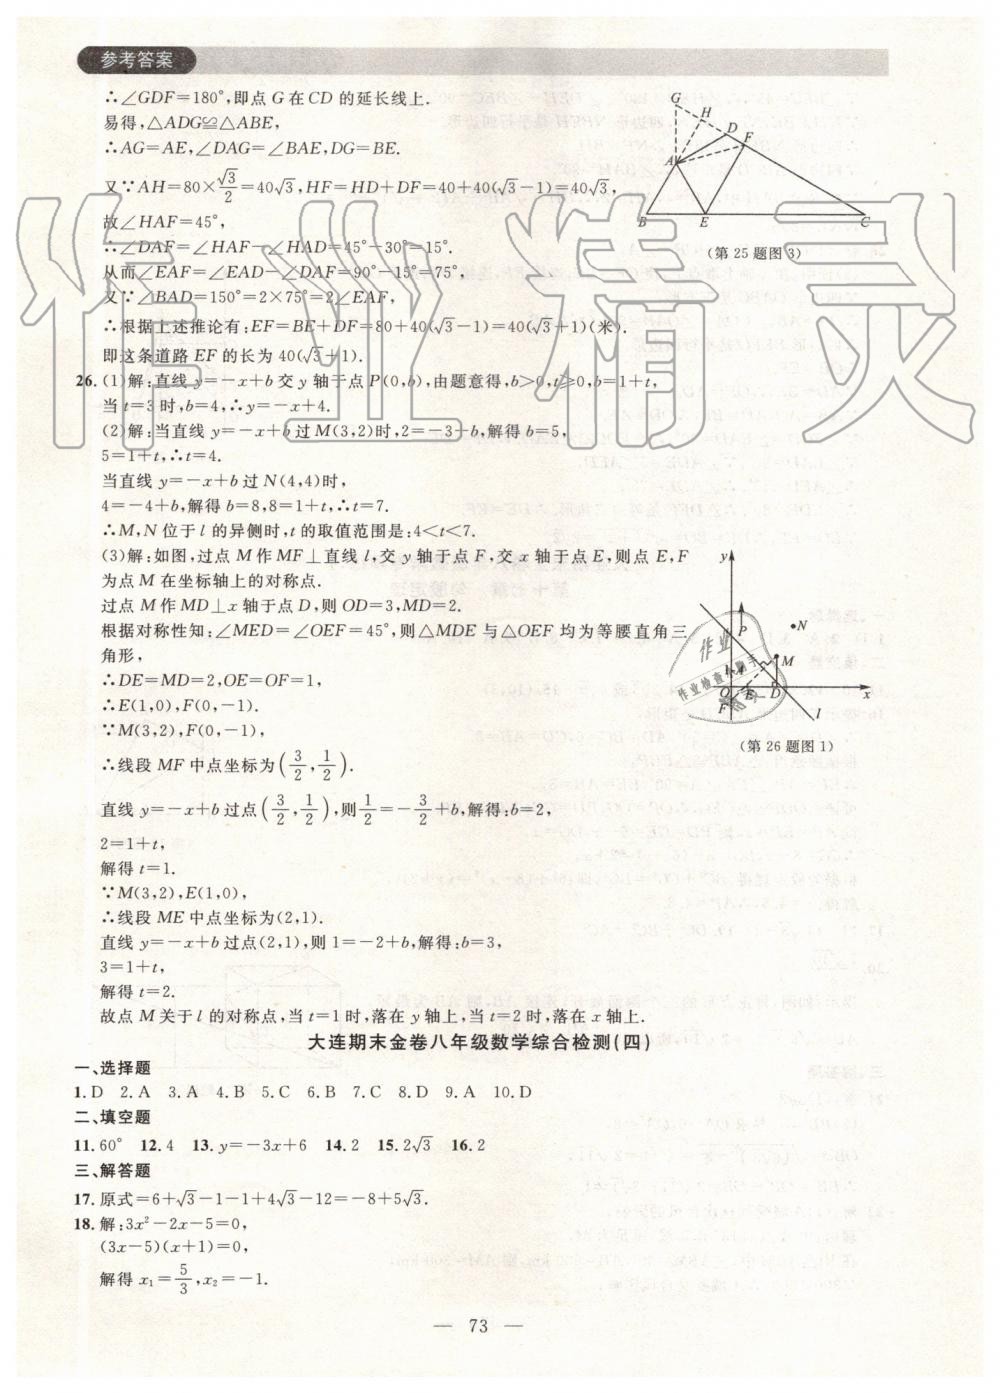 参考答案
∴∠GDF=180°,即点G在CD的延长线上.
易得,△ADG≌△ABE,
∴AG=AE,∠DAG=∠BAE,DG=BE.
又∵AH=80×√3/2=40√3,HF=HD+DF=40+40(√3-1)=40√3,
故∠HAF=45°,
∴∠DAF=∠HAF-∠HAD=45°-30°=15°.
从而∠EAF=∠EAD-∠DAF=90°-15°=75°,
又∵∠BAD=150°=2×75°=2∠EAF,
∴根据上述推论有:EF=BE+DF=80+40(√3-1)=40(√3+1)(米).
即这条道路EF的长为40(√3+1).
G
H
D
F
A
B
E
C
(第25题图3)
26.(1)解:直线y=-x+b交y轴于点P(0,b),由题意得,b>0,t≥0,b=1+t,
当t=3时,b=4,∴y=-x+4.
(2)解:当直线y=-x+b过M(3,2)时,2=-3+b,解得b=5,
5=1+t,∴t=4.
当直线y=-x+b过N(4,4)时,
4=-4+b,解得b=8,8=1+t,∴t=7.
∴M,N位于l的异侧时,t的取值范围是:4<t<7.
(3)解:如图,过点M作MF⊥直线l,交y轴于点F,交x轴于点E,则点E,F
为点M在坐标轴上的对称点.
过点M作MD⊥x轴于点D,则OD=3,MD=2.
根据对称性知:∠MED=∠OEF=45°,则△MDE与△OEF均为等腰直角三
角形,
∴DE=MD=2,OE=OF=1,
∴E(1,0),F(0,-1).
∵M(3,2),F(0,-1),
∴线段MF中点坐标为(3/2,1/2).
直线y=-x+b过点(3/2,1/2),则1/2=-3/2+b,解得:b=2,
2=1+t,
解得t=1.
∵M(3,2),E(1,0),
∴线段ME中点坐标为(2,1).
直线y=-x+b过点(2,1),则1=-2+b,解得:b=3,
3=1+t,
解得t=2.
故点M关于l的对称点,当t=1时,落在y轴上,当t=2时,落在x轴上.
y
P
N
M
O
D
x
F
l
(第26题图1)
大连期末金卷八年级数学综合检测(四)
一、选择题
1.D 2.A 3.A 4.B 5.C 6.B 7.C 8.D 9.A 10.D
二、填空题
11.60° 12.4 13.y=-3x+6 14.2 15.2√3 16.2
三、解答题
17.原式=6+√3-1-1+4√3-12=-8+5√3.
18.解:3x²-2x-5=0,
(3x-5)(x+1)=0,
解得x₁=5/3,x₂=-1.
— 73 —
作业精灵
作业
作业检查小助手
精灵